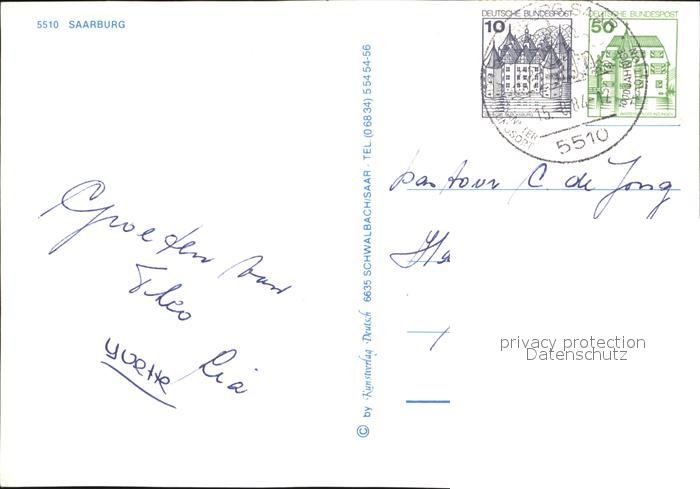 5510 SAARBURG
10 DEUTSCHE BUNDESPOST
50 DEUTSCHE BUNDESPOST
5510
C. de Jong
Groeten van
Theo
Yvette Ria
privacy protection
Datenschutz
© by Kunstverlag Deutsch 6635 SCHWALBACH/SAAR · TEL. (0 68 34) 5 54 54-56